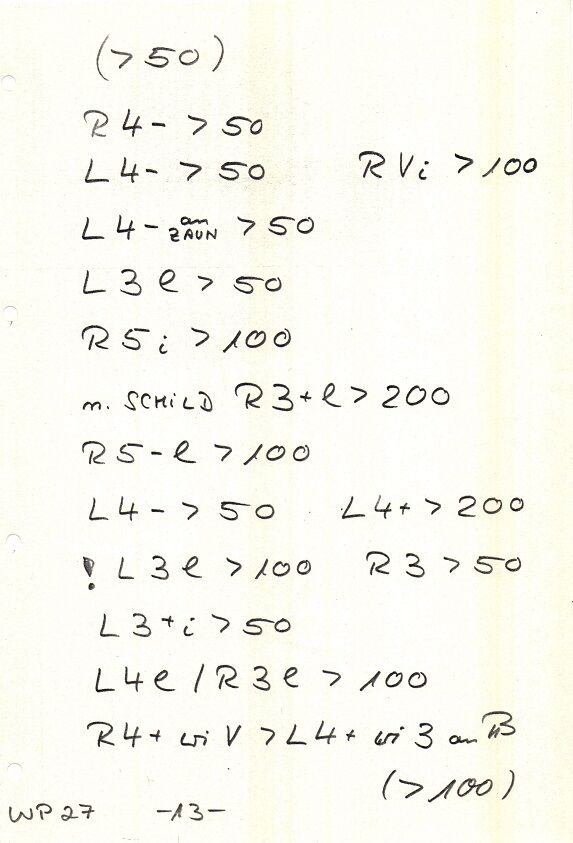 (>50)
R4- >50
L4- >50 RVi >100
L4- an ZAUN >50
L3l >50
R5i >100
n. SCHILD R3+l >200
R5-l >100
L4- >50 L4+ >200
! L3l >100 R3 >50
L3+i >50
L4l/R3l >100
R4+ wi V >L4+ wi 3 an
(>100)
WP27 -13-